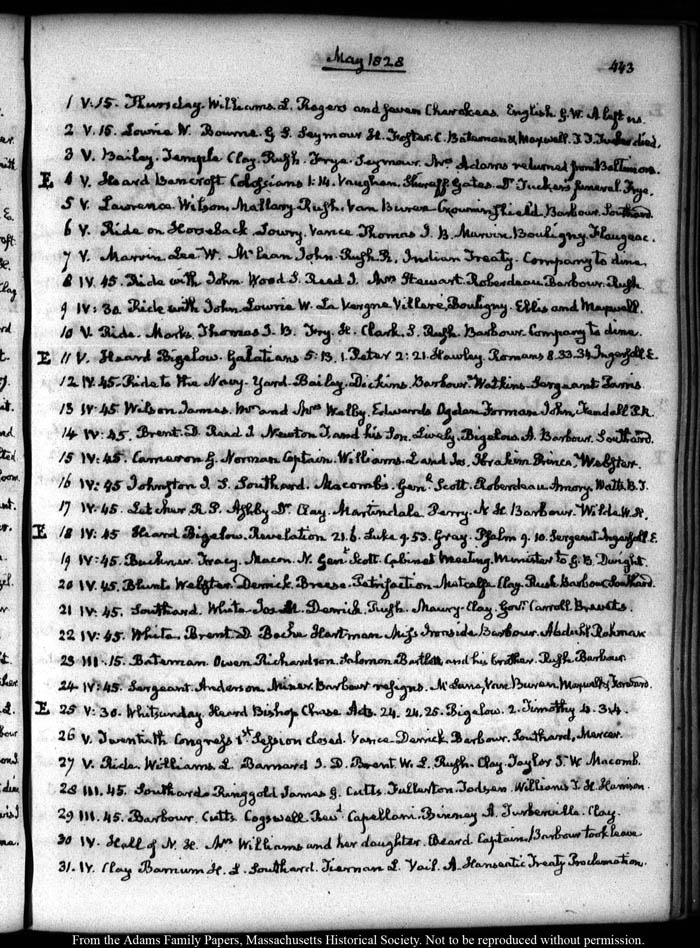 May 1828
443
1 V:15. Thursday. Williams. L. Rogers and seven Cherokees. English. G. W. A left us.
2 V. 15. Lowrie W. Bourne. G S. Seymour H. Foster. C. Bateman & Maxwell. T. T. Tucker died.
3 V. Bailey. Temple Clay. Rush. Frye. Seymour. Mrs Adams returned from Baltimore.
E 4 V. Heard Bancroft Colossians 1:14. Vaughan. Gates. Dr Tucker's funeral. Frye.
5 V. Lawrence. Wilson. Mallary Rush. Van Buren Crowninshield Barbour. Southard
6 V. Ride on Horseback Lowry. Vance Thomas J. B. Marvin Bouligny. Flaugeac.
7 V. Marvin Lee W. McLean John. Rush. R. Indian Treaty. Company to dine.
8 IV. 45. Ride with John. Wood S. Reed J. Mrs Stewart. Roberdeau. Barbour. Rush
9 IV: 30. Ride with John. Lowrie W. La Vergne Villere, Bouligny. Ellis and Maxwell.
10 V. Ride. Marks. Thomas J. B. Fry. H. Clark. S. Rush Barbour. Company to dine.
E 11 V. Heard Bigelow. Galatians 5:13. 1. Peter 2:21. Hawley. Romans 8.33.34 Ingersoll E.
12 IV. 45. Ride to the Navy-Yard. Bailey. Dickins. Barbour. Watkins. Sergeant
13 IV. 45 Wilson James. Mr and Mrs Welby. Edwards Ogden Forman John, Kendall
14 IV: 45. Brent. D. Read J Newton T. and his Son. Lively. Bigelow A. Barbour. Southard.
15 IV: 45. Cameron G. Norman Captain. Williams. L and Jas. Ibrahim Prince. Webster.
16 IV: 45 Johnston J. S. Southard. Macomb. Genl Scott. Roberdeau. Amory. Watts. B. J.
17 IV. 45. Letcher R. P. Ashby Dr Clay. Martindale Perry. N. H. Barbour. Wilde.
E 18 IV: 45 Heard Bigelow. Revelation 21.6. Luke 9.53. Gray. Psalm 9.10. Sergeant Ingersoll E.
19 IV: 45. Buckner. Tracy. Macon. N. Genl Scott. Cabinet Meeting. Minister to G. B. Dwight.
20 IV. 45. Blunt Webster. Derrick Breese. Metcalfe Clay. Rush Barbour Southard.
21 IV: 45. Southard. White Jos M. Derrick. Rush. Maury. Clay. Govr Carroll
22 IV: 45. White. Brent. D. Bache Hartman Miss Ironside Barbour. Abduhl Rahman
23 III. 15. Bateman. Owen Richardson. Solomon Bartlett and his brother. Rush. Barbour
24 IV: 45. Sergeant. Anderson. Miner. Barbour resigns. McLane, Van Buren
E 25 V: 30. Whitsunday. Heard Bishop Chase Acts. 24. 24.25. Bigelow. 2. Timothy 4. 3.4.
26 V. Twentieth Congress 1st Session closed. Vance Derrick. Barbour. Southard, Mercer.
27 V. Ride. Williams. L. Barnard J. D. Brent. W. L. Rush. Clay. Taylor J. W. Macomb.
28 III. 45. Southard. Ringgold. James G. Cutts. Fullerton. Williams J. H. Harrison.
29 III. 45. Barbour. Cutts. Cogswell. Revd Capellani. Binney A. Clay.
30 IV. Hall of N. H. Mrs Williams and her daughter. Beard Captain. Barbour took leave
31. IV. Clay Barnum H. L. Southard. Tiernan L. Vail. A. Hanseatic Treaty Proclamation.
From the Adams Family Papers, Massachusetts Historical Society. Not to be reproduced without permission.